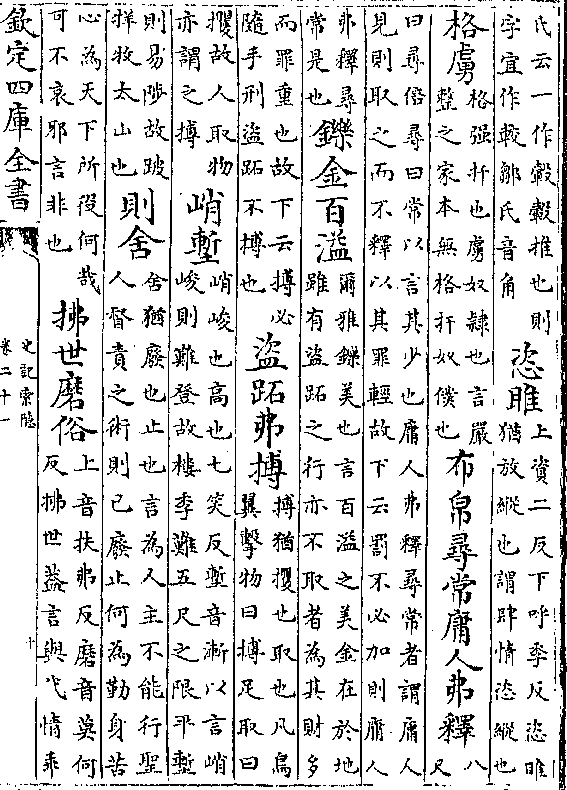 氏云一作觳觳推也則
字宜作較鄒氏音角
恣雎
上資二反下呼季反恣睢
猶放縱也謂肆情恣縱也
格虜
格强扞也虜奴隸也言嚴
整之家本無格扞奴僕也
布帛尋常庸人弗釋
八
尺
曰尋倍尋曰常以言其少也庸人弗釋尋常者謂庸人
見則取之而不釋以其罪輕故下云罰不必加則庸人
弗釋尋
常是也
鑠金百溢
爾雅鑠美也言百溢之美金在於地
雖有盜跖之行亦不取者為其財多
而罪重也故下云搏必
隨手刑盜跖不搏也
盜跖弗搏
搏猶攫也取也凡鳥
翼擊物曰搏足取曰
攫故人取物
亦謂之搏
峭塹
峭峻也高也七笑反塹音漸以言峭
峻則難登故樓季難五尺之限平塹
則易陟故跛
牂牧太山也
則舍
舍猶廢也止也言為人主不能行聖
人督責之術則已廢止何為勤身苦
心為天下所役何哉
可不哀邪言非也
拂世磨俗
上音扶弗反磨音莫何
反拂世蓋言與代情乖
欽定四庫全書
史記索隱
卷二十一
十